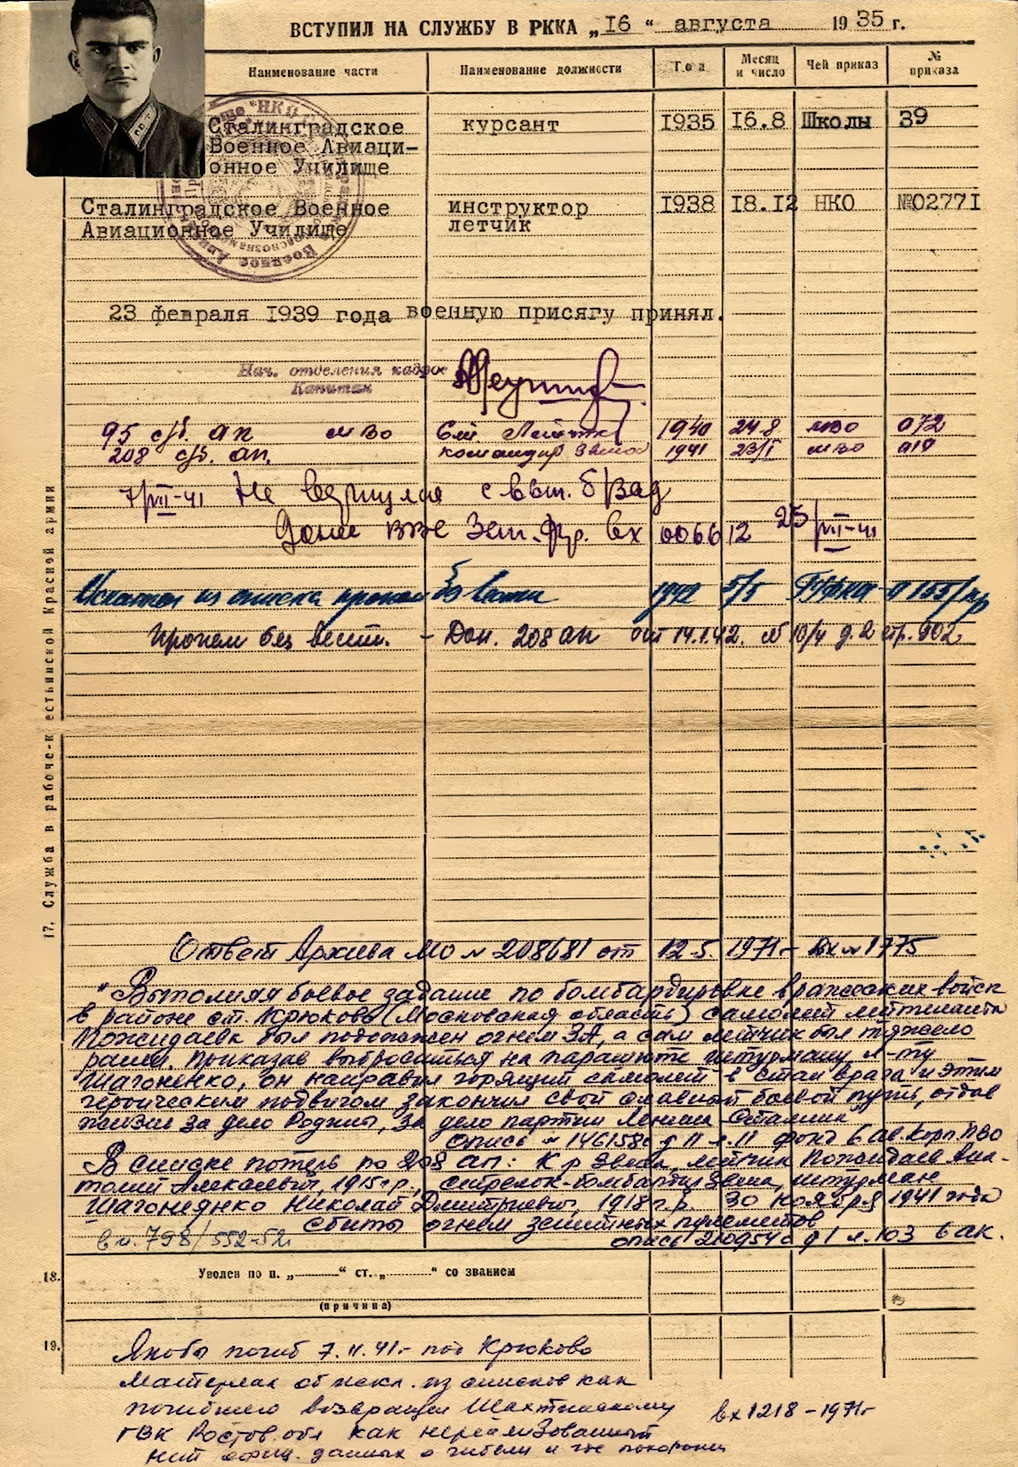 ВСТУПИЛ НА СЛУЖБУ В РККА „16“ августа 1935 г.
Наименование части Наименование должности Год Месяц и число Чей приказ № приказа
Сталинградское курсант 1935 16.8 Школы 39
Военное Авиаци-
онное Училище
Сталинградское Военное инструктор 1938 18.12 НКО №02771
Авиационное Училище летчик
23 февраля 1939 года военную присягу принял.
Нач. отделения кадров
Капитан
95 сб. ап мво 1940 24.8 мво 072
208 сб. ап. командир звена 1941 23/I мво 019
7/VII-41 Не вернулся с вып. б/зад
Зап. фр. вх 006612 25/VII-41
из списка 1942 5/5
Пропал без вести. - Дон. 208 ап от 14.1.42. д. 2 стр. 902
17. Служба в рабоче-крестьянской Красной армии
Ответ Архива МО № 208681 от 12.5.1971г Вх № 1775
"Выполняя боевое задание по бомбардировке вражеских войск
в районе ст. Крюково (Московская область) самолет лейтенанта
Пожидаева был подожжен огнем ЗА, а сам летчик был тяжело
ранен. Приказав выброситься на парашюте штурману л-ту
Шагоненко, он направил горящий самолет в стан врага и этим
героическим подвигом закончил свой славный боевой путь, отдав
жизнь за дело Родины, за дело партии Ленина-Сталина"
опись № 146158с д 11 л. 11 фонд 6 ав. корп. ПВО
В списке потерь по 208 ап: К-р звена, летчик Пожидаев Ана-
толий Алексеевич, 1915 г.р., стрелок-бомбардир звена, штурман
Шагоненко Николай Дмитриевич, 1918 г.р. 30 ноября 1941 года
сбиты огнем зенитных пулеметов
вх. 798/552-52г опись 210954с д 1 л. 103 6 ак.
18. Уволен по п. „ “ ст. „ “ со званием
(причина)
19. Якобы погиб 7.11.41г под Крюково
Материал об искл. из списков как
погибшего возвращен Шахтинскому вх 1218-1971г
ГВК Ростов. обл как нереализованный
нет офиц. данных о гибели и где похоронен